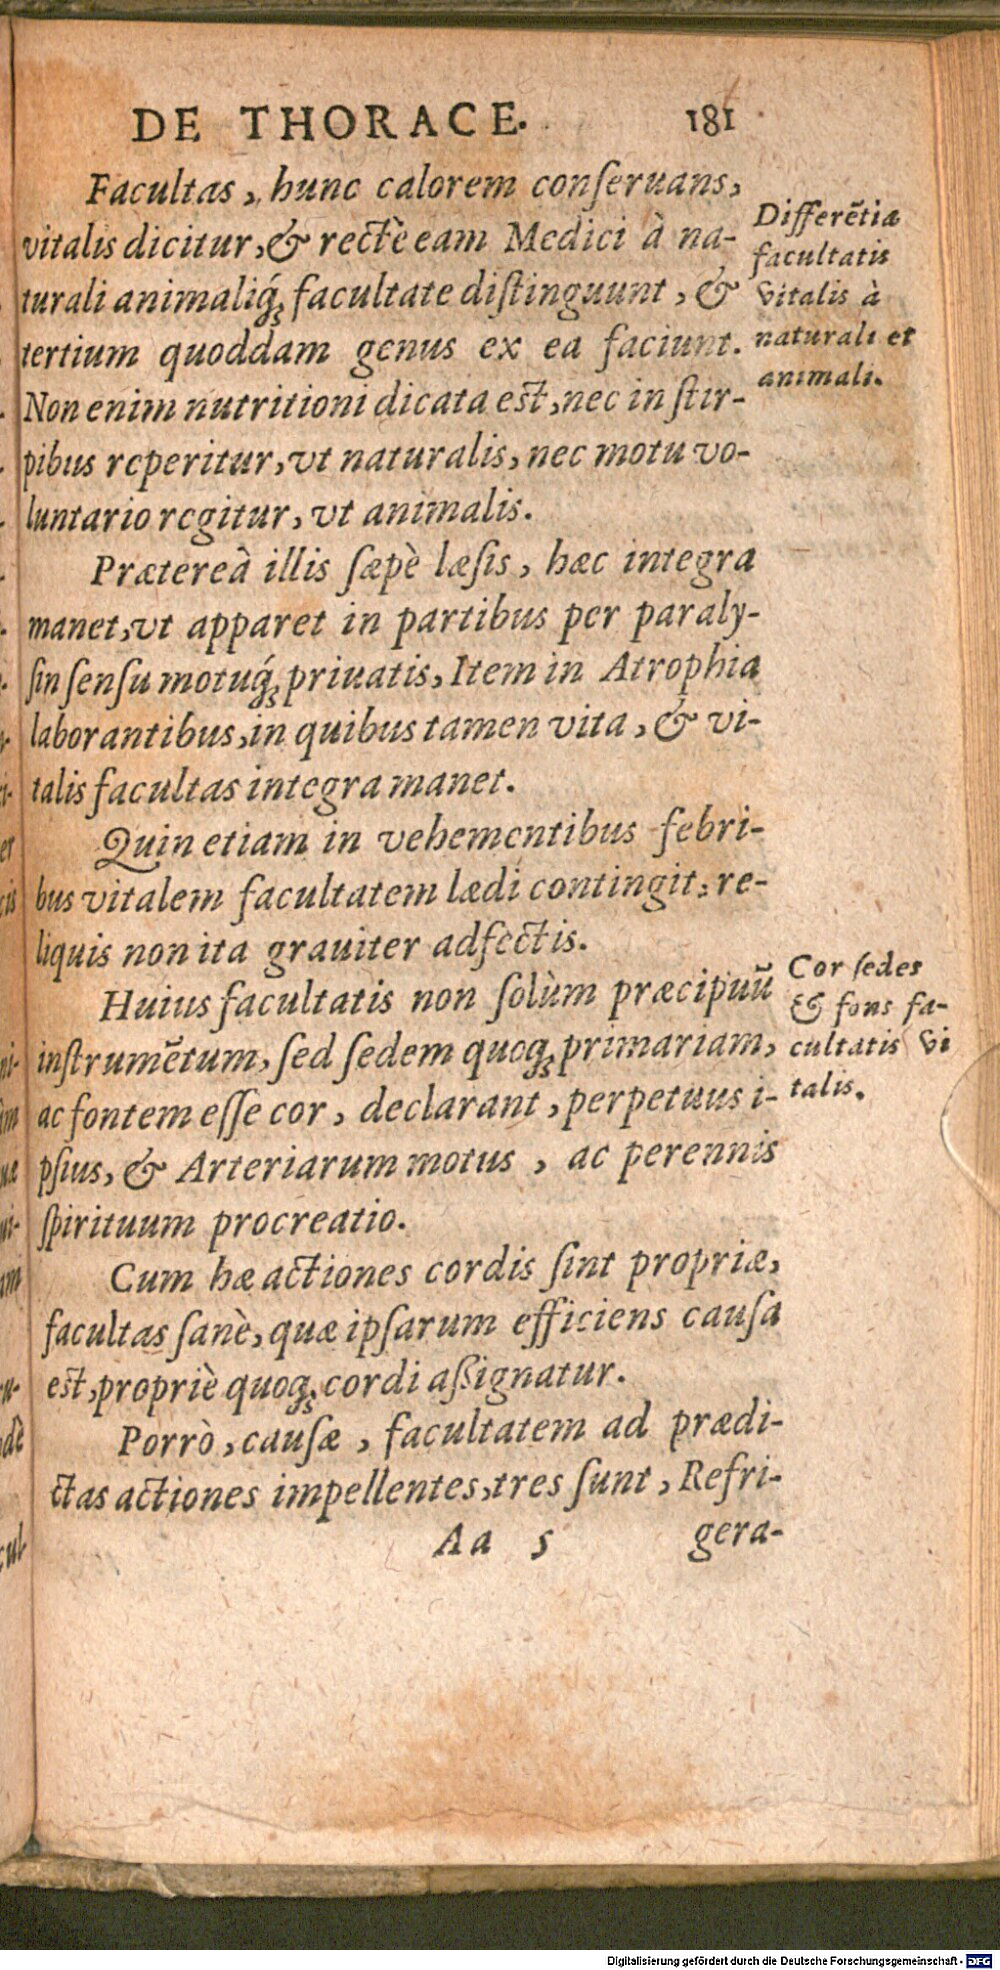 DE THORACE. 181
Facultas, hunc calorem conſeruans,
vitalis dicitur, & rectè eam Medici à na-
turali animaliq́ꝫ facultate diſtinguunt, &
tertium quoddam genus ex ea faciunt.
Non enim nutritioni dicata est, nec in ſtir-
pibus reperitur, vt naturalis, nec motu vo-
luntario regitur, vt animalis.
Differētiæ
facultatis
vitalis à
naturali et
animali.
Prætereà illis ſæpè læſis, hæc integra
manet, vt apparet in partibus per paraly-
ſin ſenſu motuq́ꝫ priuatis, Item in Atrophia
laborantibus, in quibus tamen vita, & vi-
talis facultas integra manet.
Quin etiam in vehementibus febri-
bus vitalem facultatem lædi contingit: re-
liquis non ita grauiter adfectis.
Huius facultatis non ſolùm præcipuū
inſtrumētum, ſed ſedem quoqꝫ primariam,
ac fontem eſſe cor, declarant, perpetuus i-
pſius, & Arteriarum motus, ac perennis
ſpirituum procreatio.
Cor ſedes
& fons fa-
cultatis vi
talis.
Cum hæ actiones cordis ſint propriæ,
facultas ſanè, quæ ipſarum efficiens cauſa
est, propriè quoqꝫ cordi aſsignatur.
Porrò, cauſæ, facultatem ad prædi-
ctas actiones impellentes, tres ſunt, Refri-
Aa 5 gera-
Digitalisierung gefördert durch die Deutsche Forschungsgemeinschaft - DFG